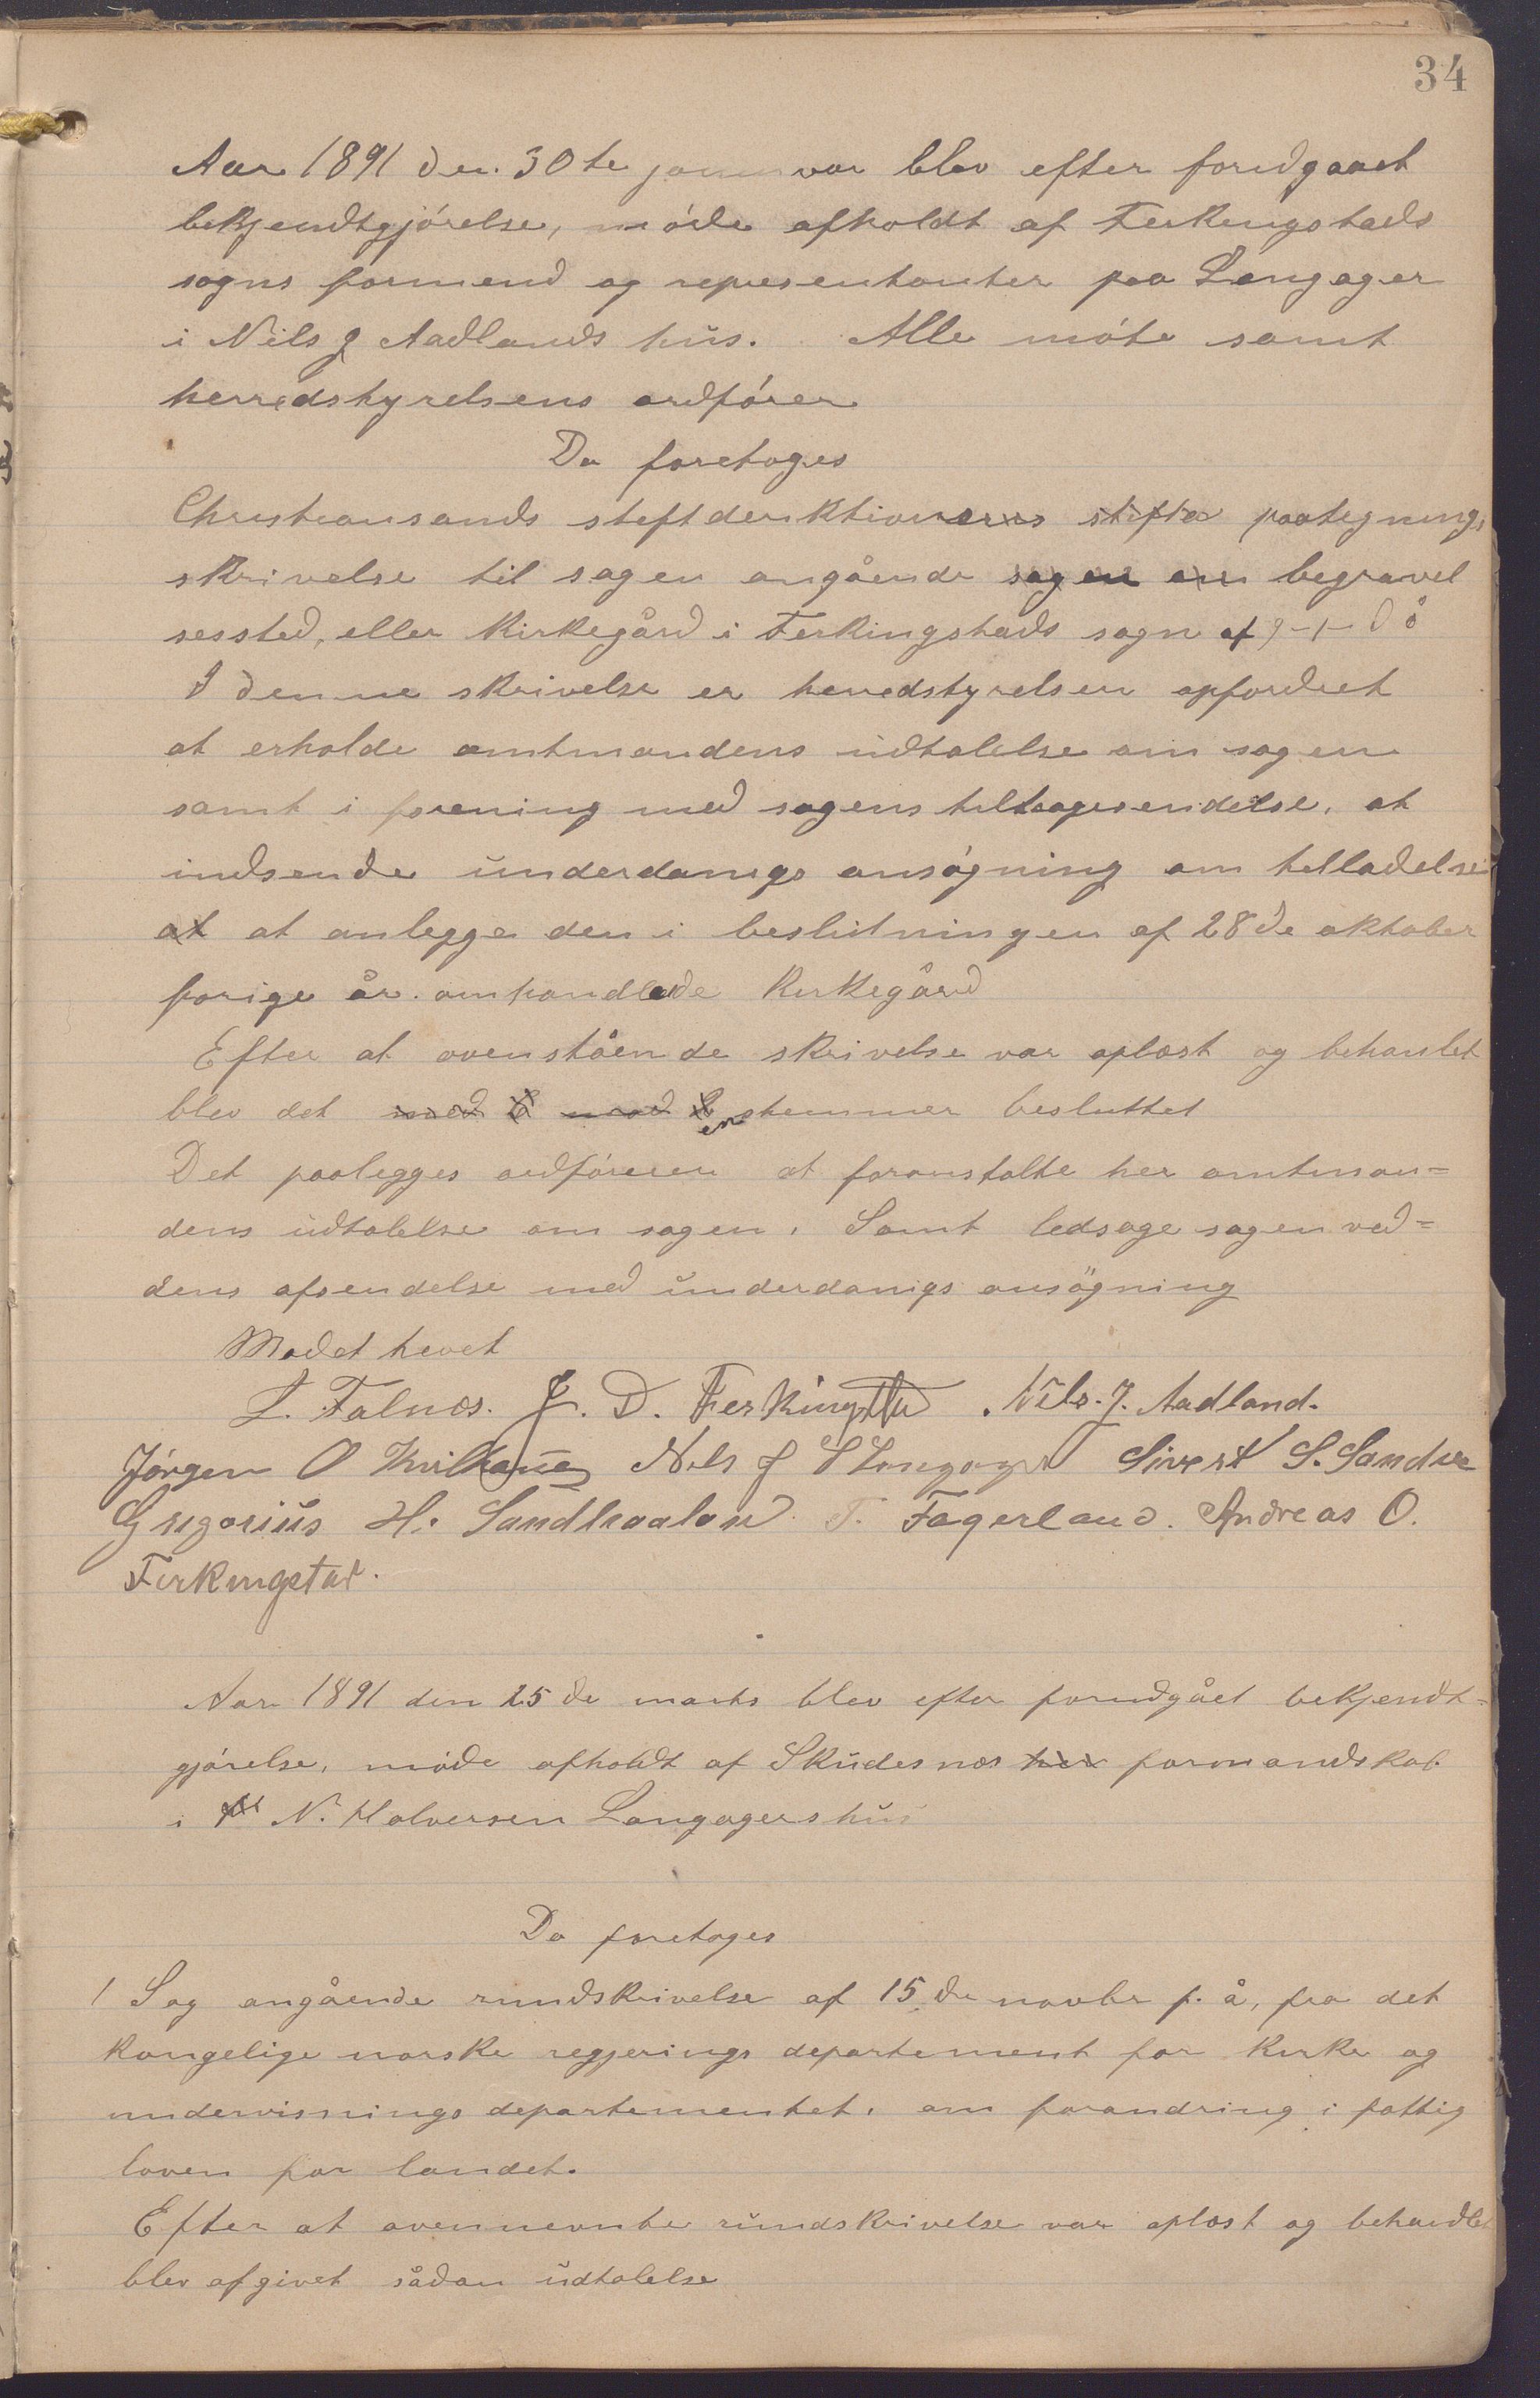 34
Aar 1891 den 30te januar blev efter forudgaaet
bekjendtgjórelse, móde afholdt af Ferkingstads
sogns formend og representanter paa Langager
i Nils J Aadlands hus. Alle móte samt
herredstyrelsens ordfórer
Da foretoges
Christiansands steftderiktioners stifter paategnings
skrivelse til sagen angående sagen om begravel
sessted, eller kirkegård i Ferkingstads sogn af 9-1- d å
I denne skrivelse er herredstyrelsen opfordret
at erholde amtmandens udtalelse om sagen
samt i forening med sagens tilbagesendelse, at
indsende underdanigs ansógning om tilladelse
at at anlegge den i beslutningen af 28de oktober
forige år omhandlede kirkegård
Efter at ovenstående skrivelse var oplæst og behanlet
blev det med mod enstemmer besluttet
Det paalegges ordfóreren at foranstalte her amtman=
dens udtalelse om sagen, Samt ledsage sagen ved=
dens afsendelse med underdanigs ansögning
Modet hevet
L. Falnes. J. D. Ferkingstad Nils. J. Aadland.
Jórgen O Kvilhaug Nils J S Langager Sivert S. Sandve
Gregorius H. Sandhaaland T. Fagerland. Andreas O.
Ferkingstad.
Aar 1891 den 25de marts blev efter forudgået bekjendt=
gjórelse, móde afholdt af Skudesnes her formandskab
i N. Halversen Langagers hus
Da foretoges
1 Sag angående rundskrivelse af 15de novbr f. å, fra det
kongelige norske regjerings departement for kirke og
undervisnings departementet, om forandring i fattig
loven for landet.
Efter at ovennevnte rundskrivelse var oplæst og behandlet
blev afgivet sådan udtalelse